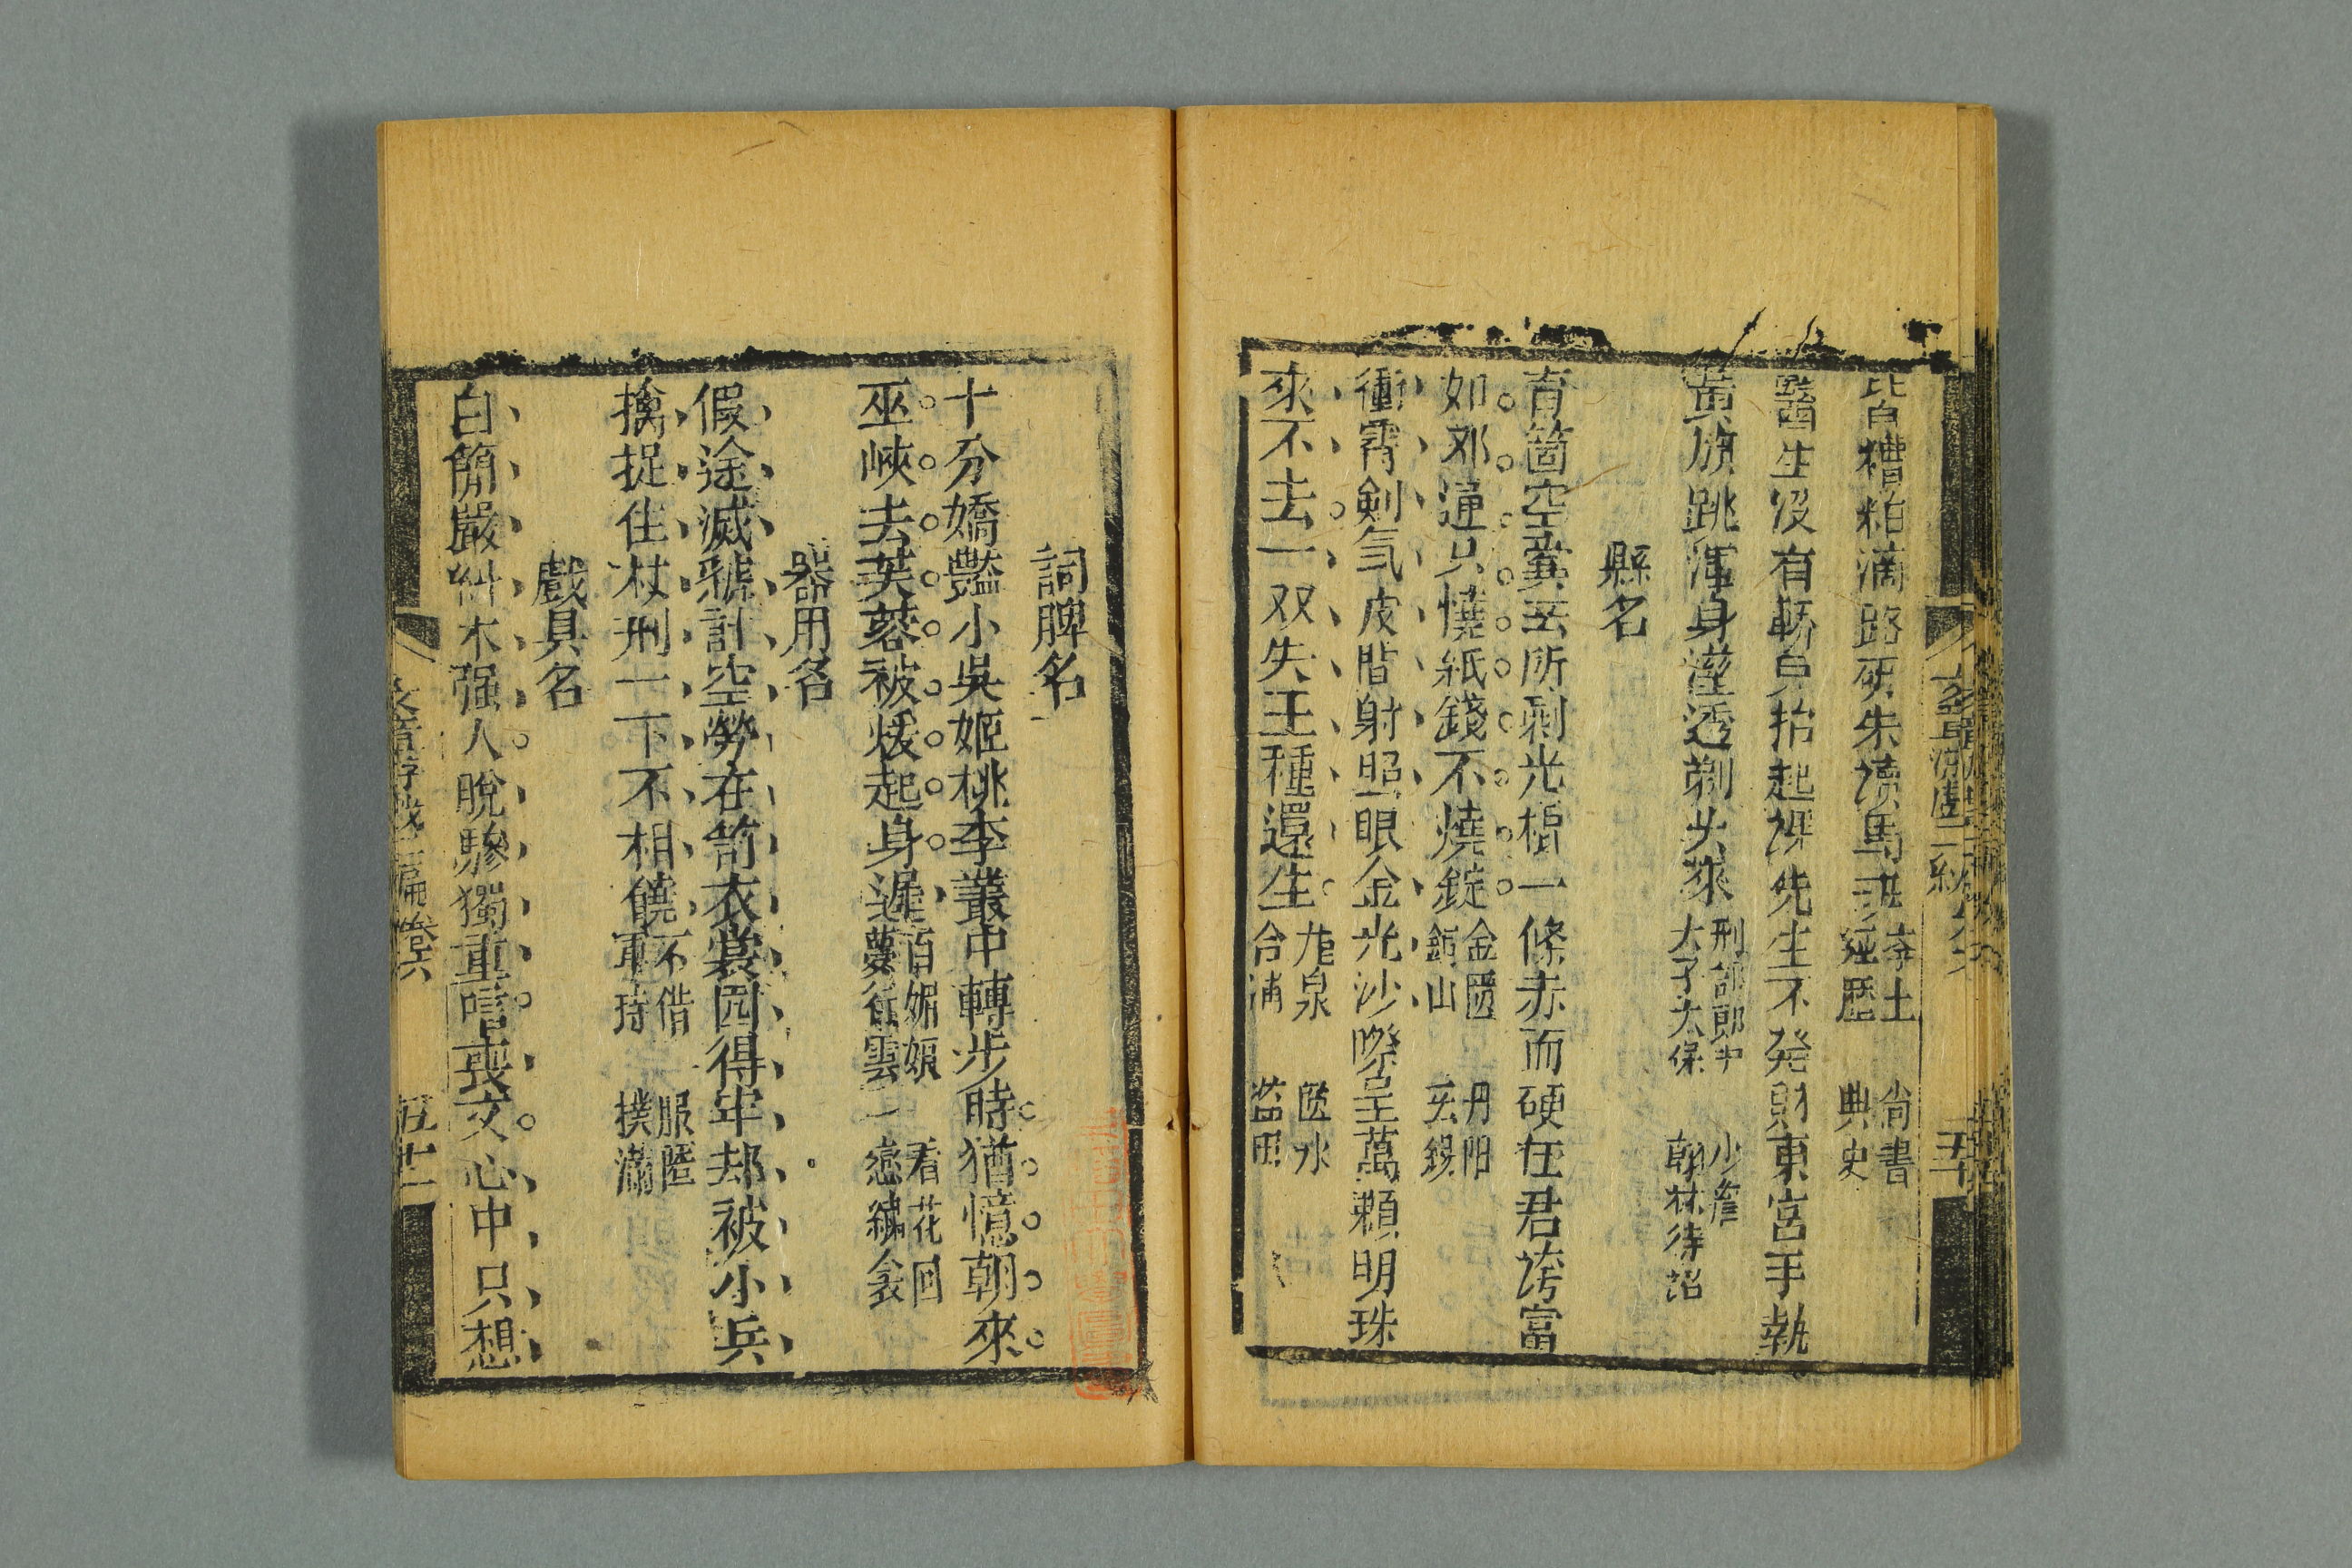 皆白糟粕滴路硏朱讀馬 李士 經歷 尙書 典史
醫生沒有轎自抬起課先生不発財東宮手執
黄旗跳渾身溼透剃头來 刑部郎中 太子太保 少詹 翰林待招
縣名
育箇空囊玄所剩光棍一條赤而硬在君誇富
如邓通只燒紙錢不燒錠 金匱 銅山 丹阳 无錫
衝霄剣氣皮階射照眼金光沙際呈萬顆明珠
來不去一双失王種還生 龍泉 合浦 麗水 蓝田
詞牌名
十分嬌艷小吳姬桃李叢中轉步時猶憶朝來
巫峽去芙蓉被煖起身遲 百媚娘 夢行雲 看花囬 戀繡衾
器用名
假途滅虢計空勞在笥衣裳园得牢却被小兵
擒捉住杖刑一下不相饒 不借 軍持 服匿 撲滿
戲具名
白簡嚴糾木强人脫驂獨重唁喪文心中只想
文章游戲二編 卷六
五十一
五十